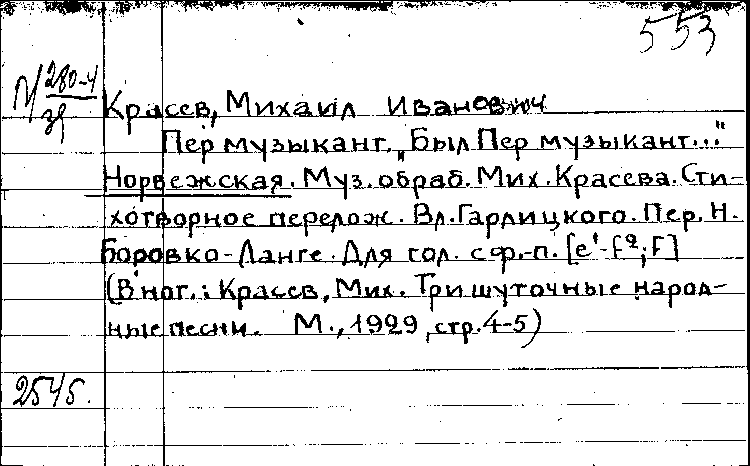 553
280-4
Красев, Михаил Иванович
Пер музыкант. „Был Пер музыкант..."
Норвежская. Муз. обраб. Мих. Красева. Сти-
хотворное перелож. Вл. Гарлицкого. Пер. Н.
Боровко-Ланге. Для гол. с ф.-п. [e¹-f²; F]
(В ног.: Красев, Мих. Три шуточные народ-
ные песни. М., 1929, стр. 4-5)
2545.